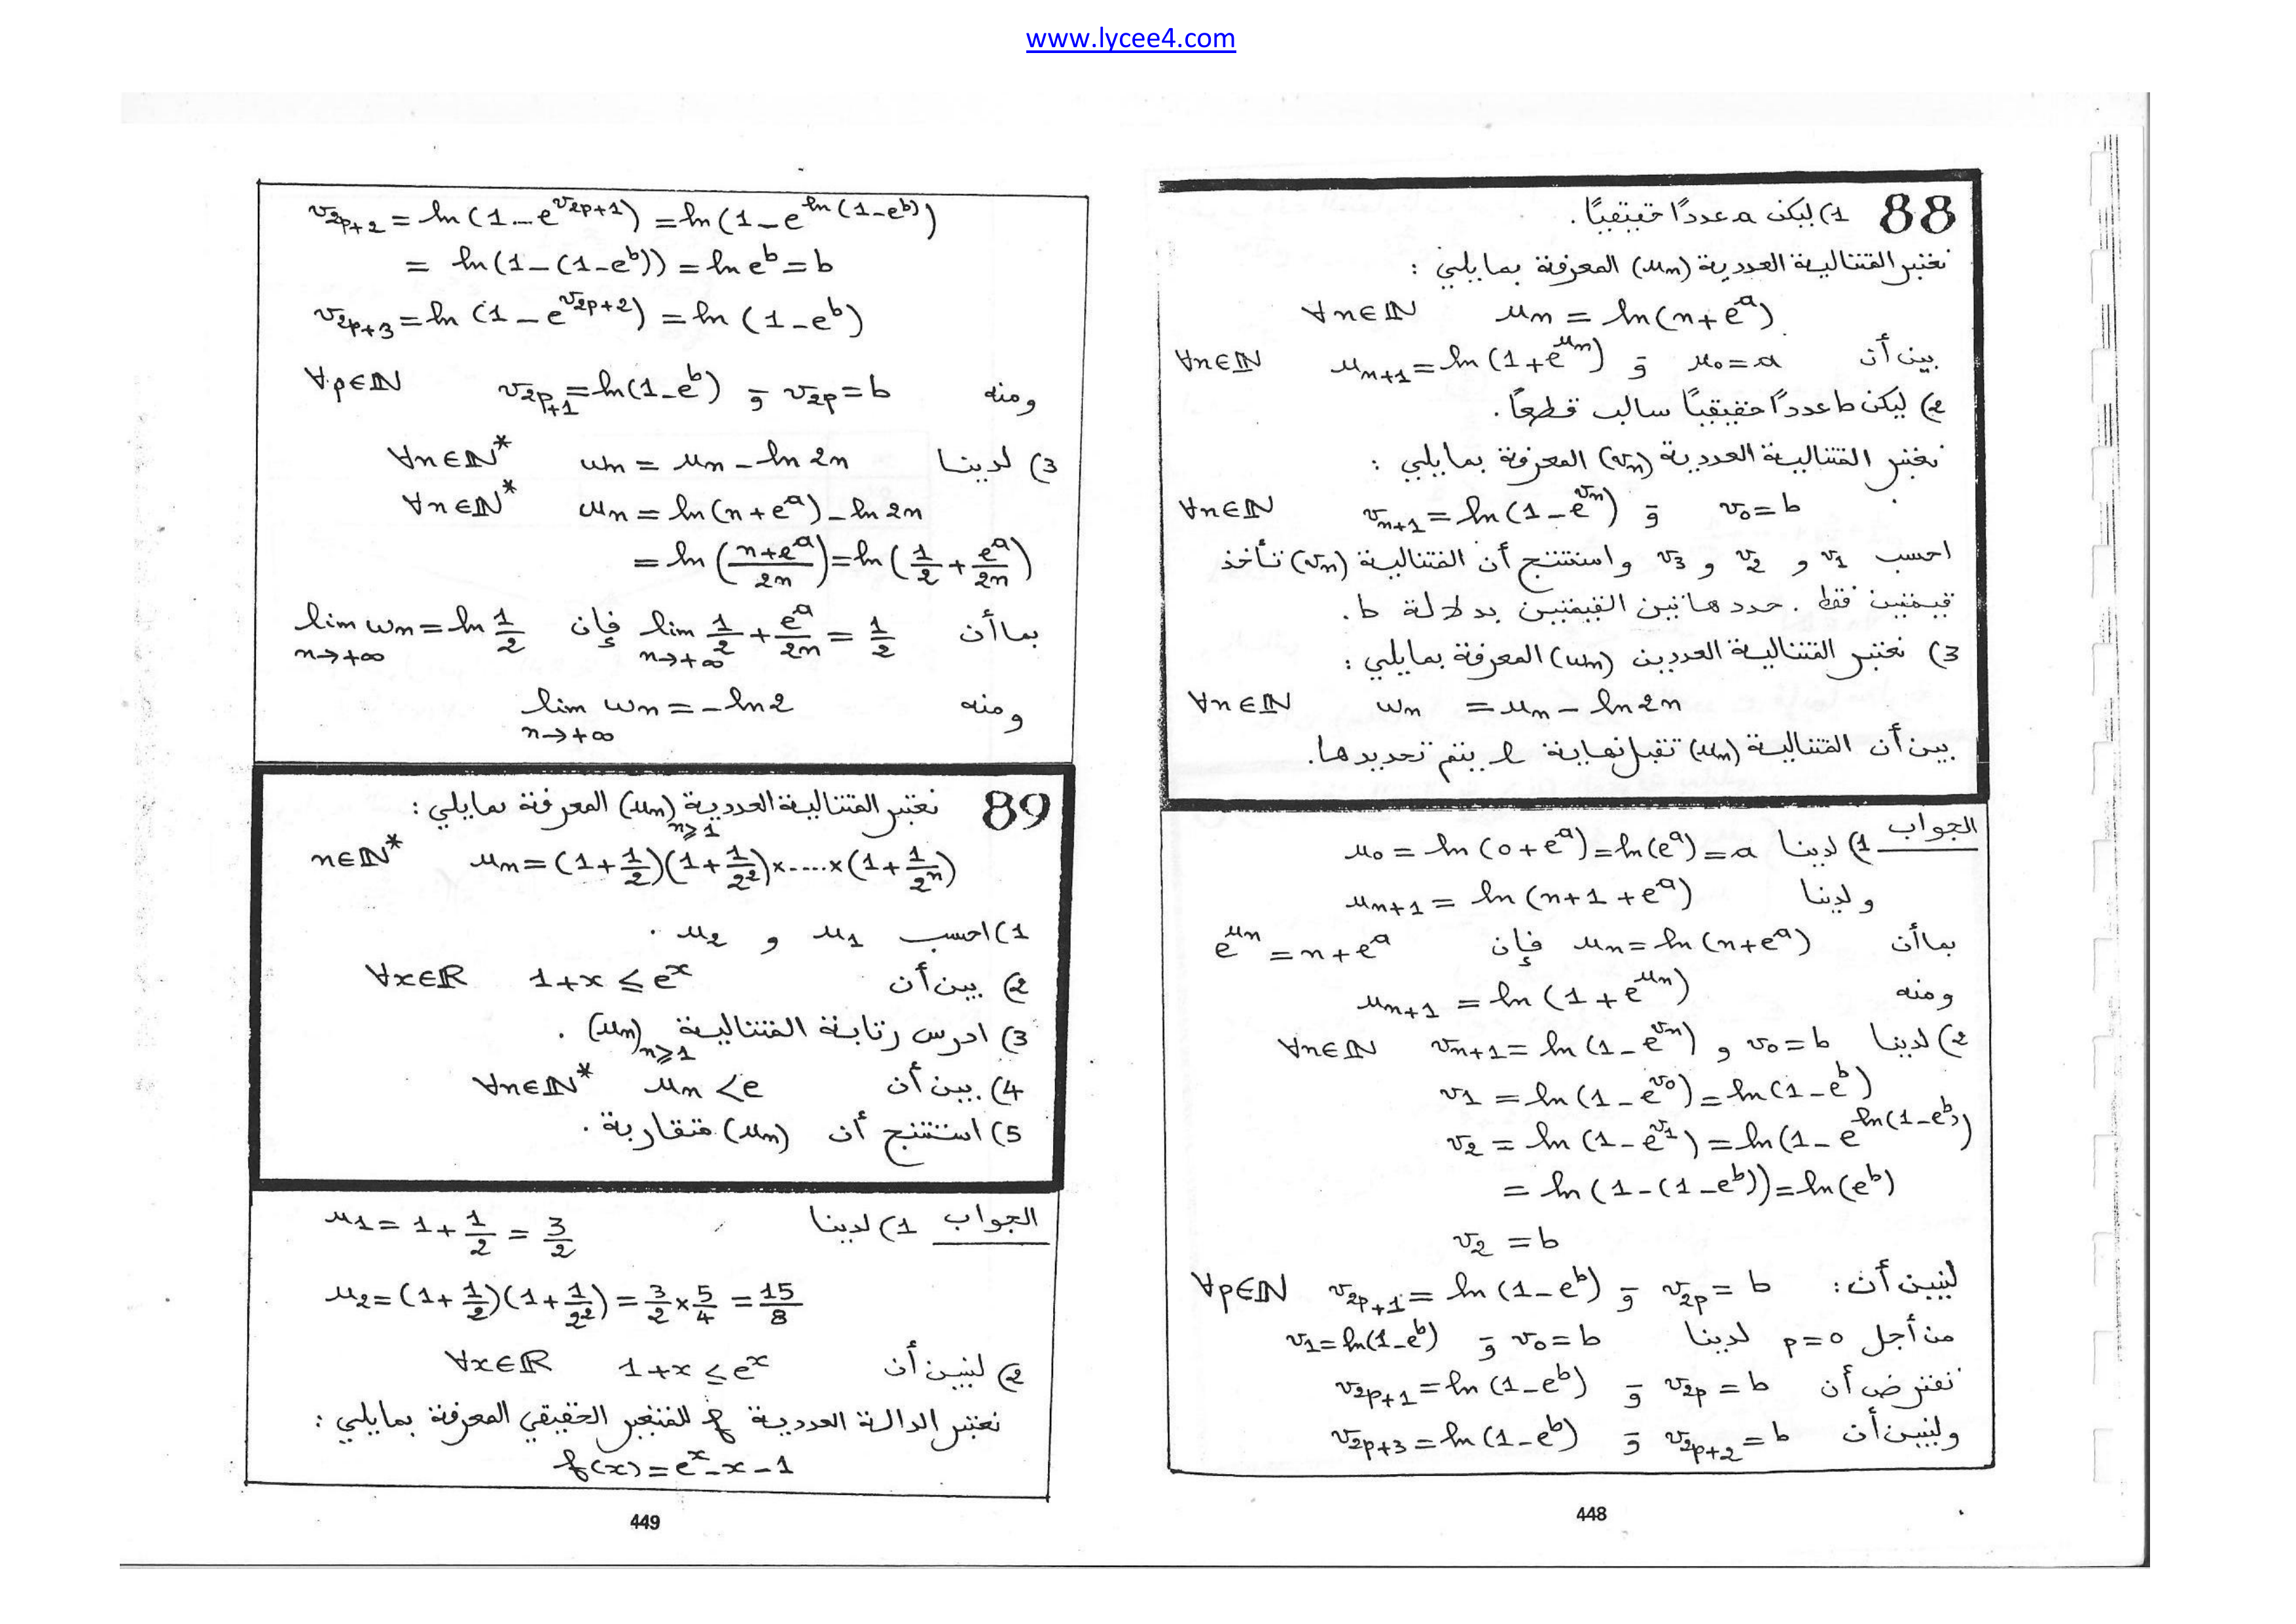 www.lycee4.com
88 1) ليكن a عددًا حقيقيًا.
نعتبر المتتالية العددية (u_n) المعرفة بمايلي :
∀n∈ℕ u_n = ln(n+e^a)
بين أن u_0 = a وَ u_{n+1} = ln(1+e^{u_n}) ∀n∈ℕ
2) ليكن b عددًا حقيقيًا سالب قطعًا.
نعتبر المتتالية العددية (v_n) المعرفة بمايلي :
v_0 = b وَ v_{n+1} = ln(1-e^{v_n}) ∀n∈ℕ
احسب v_1 و v_2 و v_3 واستنتج أن المتتالية (v_n) تأخذ
قيمتين فقط . حدد هاتين القيمتين بدلالة b.
3) نعتبر المتتالية العددين (w_n) المعرفة بمايلي :
∀n∈ℕ w_n = u_n - ln 2n
بين أن المتتالية (w_n) تقبل نهاية l يتم تحديدها.
الجواب 1) لدينا u_0 = ln(0+e^a) = ln(e^a) = a
ولدينا u_{n+1} = ln(n+1+e^a)
بما أن u_n = ln(n+e^a) فإن e^{u_n} = n+e^a
ومنه u_{n+1} = ln(1+e^{u_n})
2) لدينا v_0 = b و v_{n+1} = ln(1-e^{v_n}) ∀n∈ℕ
v_1 = ln(1-e^{v_0}) = ln(1-e^b)
v_2 = ln(1-e^{v_1}) = ln(1-e^{ln(1-e^b)})
= ln(1-(1-e^b)) = ln(e^b)
v_2 = b
لنبين أن: v_{2p} = b وَ v_{2p+1} = ln(1-e^b) ∀p∈ℕ
من أجل p=0 لدينا v_0 = b وَ v_1 = ln(1-e^b)
نفترض أن v_{2p} = b وَ v_{2p+1} = ln(1-e^b)
ولنبين أن v_{2p+2} = b وَ v_{2p+3} = ln(1-e^b)
448
v_{2p+2} = ln(1-e^{v_{2p+1}}) = ln(1-e^{ln(1-e^b)})
= ln(1-(1-e^b)) = ln e^b = b
v_{2p+3} = ln(1-e^{v_{2p+2}}) = ln(1-e^b)
ومنه v_{2p} = b وَ v_{2p+1} = ln(1-e^b) ∀p∈ℕ
3) لدينا w_n = u_n - ln 2n ∀n∈ℕ*
w_n = ln(n+e^a) - ln 2n ∀n∈ℕ*
= ln((n+e^a)/2n) = ln(1/2 + e^a/2n)
بما أن lim_{n→+∞} 1/2 + e^a/2n = 1/2 فإن lim_{n→+∞} w_n = ln 1/2
ومنه lim_{n→+∞} w_n = -ln 2
89 نعتبر المتتالية العددية (u_n)_{n≥1} المعرفة بمايلي :
n∈ℕ* u_n = (1+1/2)(1+1/2^2)×.....×(1+1/2^n)
1) احسب u_1 و u_2 .
2) بين أن 1+x ≤ e^x ∀x∈ℝ
3) ادرس رتابة المتتالية (u_n)_{n≥1} .
4) بين أن u_n < e ∀n∈ℕ*
5) استنتج أن (u_n) متقاربة .
الجواب 1) لدينا u_1 = 1+1/2 = 3/2
u_2 = (1+1/2)(1+1/2^2) = 3/2 × 5/4 = 15/8
2) لنبين أن 1+x ≤ e^x ∀x∈ℝ
نعتبر الدالة العددية f للمتغير الحقيقي المعرفة بمايلي :
f(x) = e^x - x - 1
449